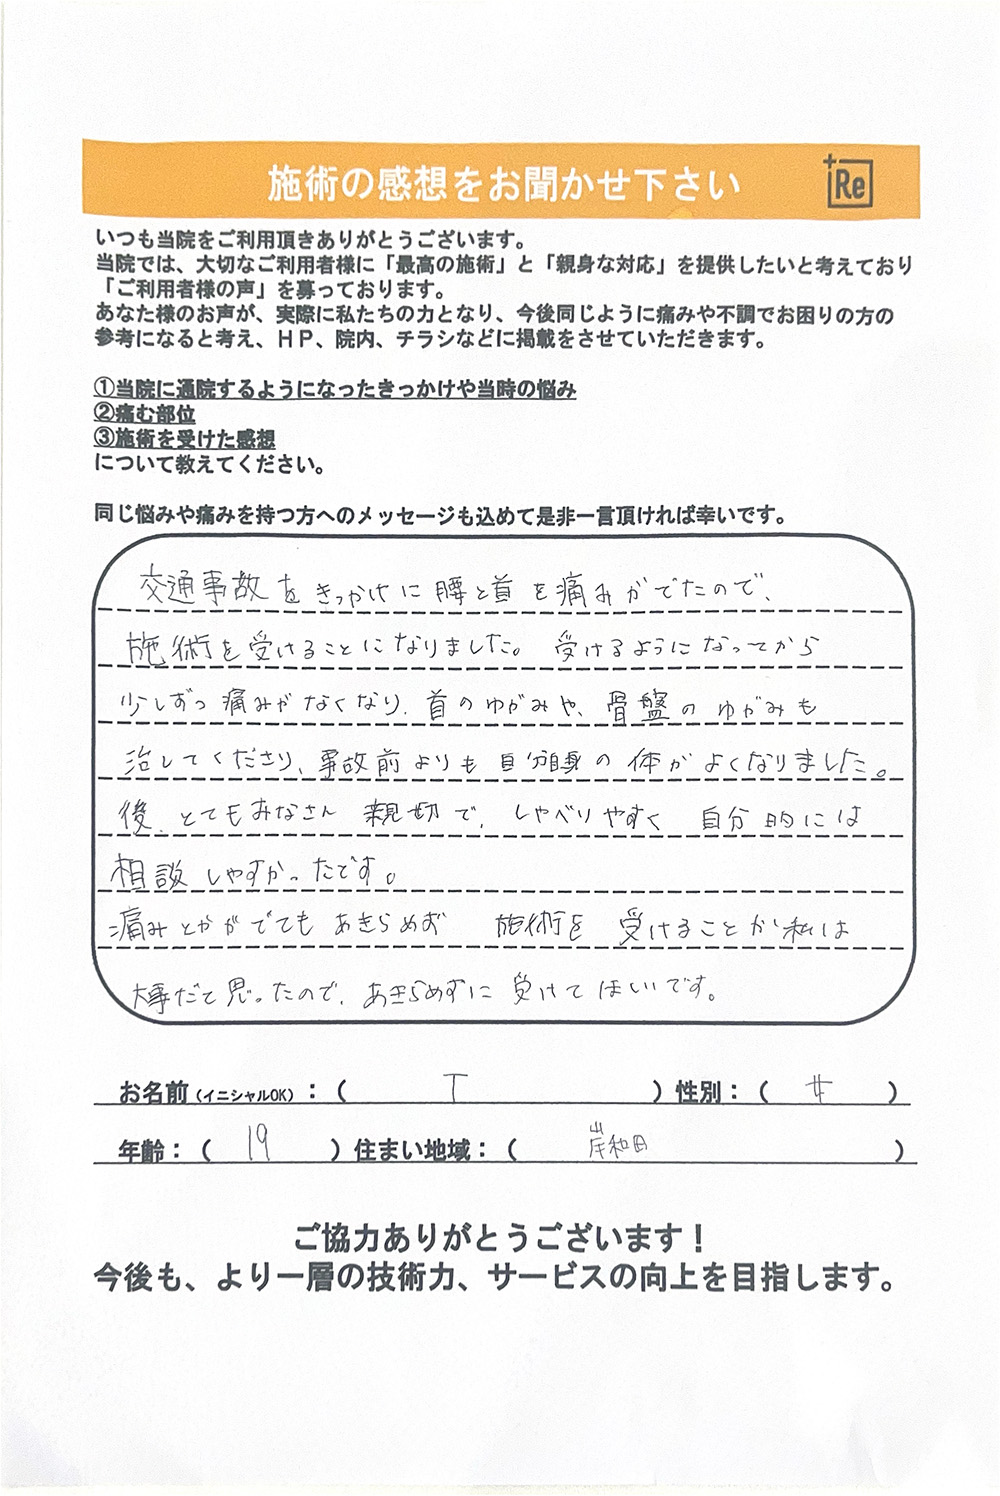 施術の感想をお聞かせ下さい
+Re
いつも当院をご利用頂きありがとうございます。
当院では、大切なご利用者様に「最高の施術」と「親身な対応」を提供したいと考えており
「ご利用者様の声」を募っております。
あなた様のお声が、実際に私たちの力となり、今後同じように痛みや不調でお困りの方の
参考になると考え、ＨＰ、院内、チラシなどに掲載をさせていただきます。
①当院に通院するようになったきっかけや当時の悩み
②痛む部位
③施術を受けた感想
について教えてください。
同じ悩みや痛みを持つ方へのメッセージも込めて是非一言頂ければ幸いです。
交通事故をきっかけに腰と首を痛みがでたので、
施術を受けることになりました。受けるようになってから
少しずつ痛みがなくなり、首のゆがみや、骨盤のゆがみも
治してくださり、事故前よりも自分自身の体がよくなりました。
後、とてもみなさん親切で、しゃべりやすく自分的には
相談しやすかったです。
痛みとかがでてもあきらめず施術を受けることが私は
大事だと思ったので、あきらめずに受けてほしいです。
お名前(イニシャルOK)：（ T ）性別：（ 女 ）
年齢：（ 19 ）住まい地域：（ 岸和田 ）
ご協力ありがとうございます！
今後も、より一層の技術力、サービスの向上を目指します。